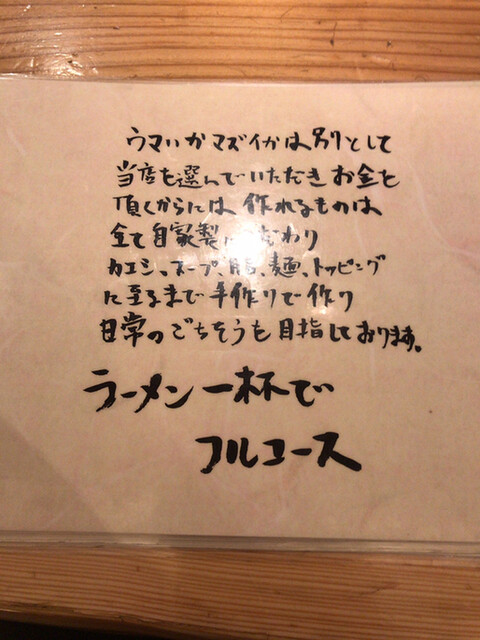 ウマいかマズイかは別として
当店を選んでいただきお金を
頂くからには作れるものは
全て自家製にこだわり
カエシ、スープ、脂、麺、トッピング
に至るまで手作りで作り
日常のごちそうを目指しております。
ラーメン一杯で
フルコース